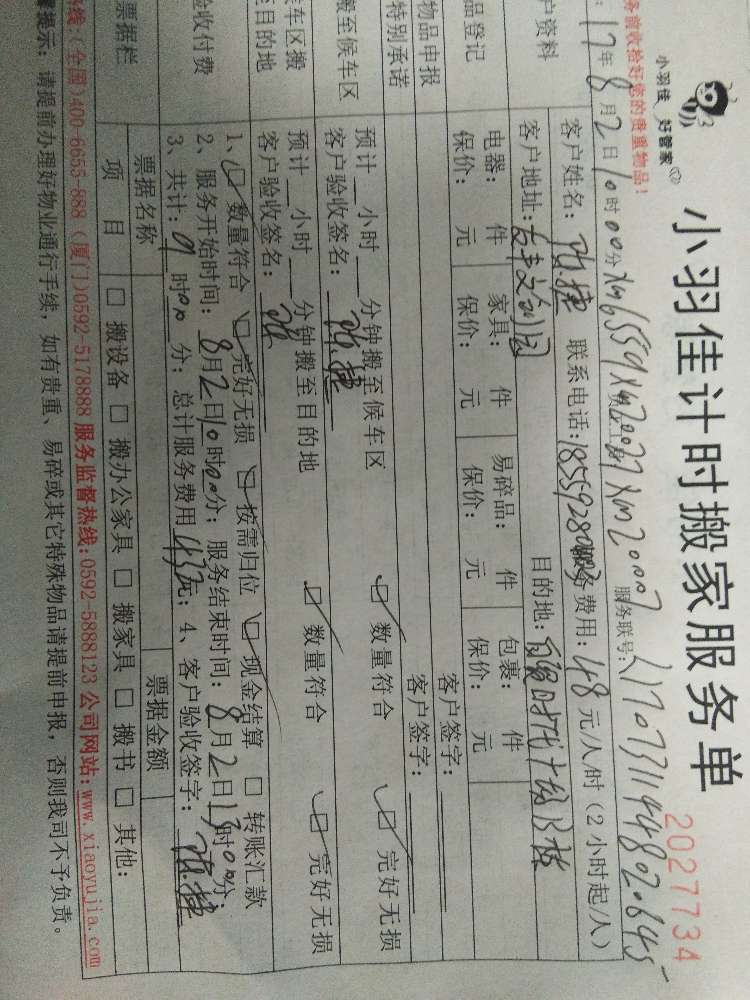 小羽佳 好管家
小羽佳计时搬家服务单
2027734
务前收拾好您的贵重物品!
17年8月2日10时00分
服务联号:
客户资料
客户姓名: 联系电话: 服务费用:48元/人/时(2小时起/人)
客户地址: 目的地:
品登记
电器: 件 家具: 件 易碎品: 件 包裹: 件
保价: 元 保价: 元 保价: 元 保价: 元
物品申报 客户签字:
特别承诺 客户签字:
搬至候车区
预计 小时 分钟搬至候车区 数量符合 完好无损
客户验收签名:
候车区搬
至目的地
预计 小时 分钟搬至目的地 数量符合 完好无损
客户验收签名:
验收付费
1、 数量符合 完好无损 按需归位 现金结算 转账汇款
2、服务开始时间:8月2日10时00分; 服务结束时间:8月2日13时00分;
3、共计: 时 分; 总计服务费用 元; 4、客户验收签字:
票据栏
票据名称 票据金额
项 目 搬设备 搬办公家具 搬家具 搬书 其他:
热线:(全国)400-6655-888 (厦门)0592-5178888 服务监督热线:0592-5888123 公司网站:www.xiaoyujia.com
提示: 请提前办理好物业通行手续,如有贵重、易碎或其它特殊物品请提前申报,否则我司不予负责。